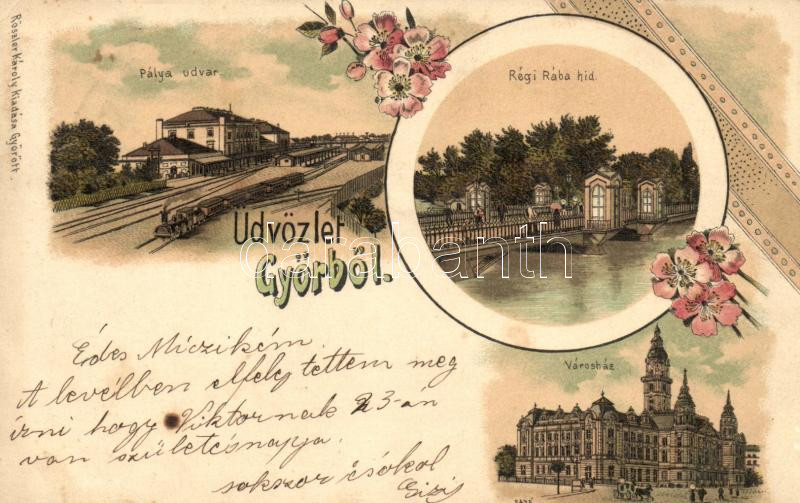 Rószler Károly Kiadása Győrött.
Pálya udvar.
Régi Rába híd.
Üdvözlet
Győrből.
darabanth
Városház
Édes Miczikém
A levélben elfelejtettem meg
írni hogy Viktornak 23-án
van születésnapja.
sokszor csókol
Gizi